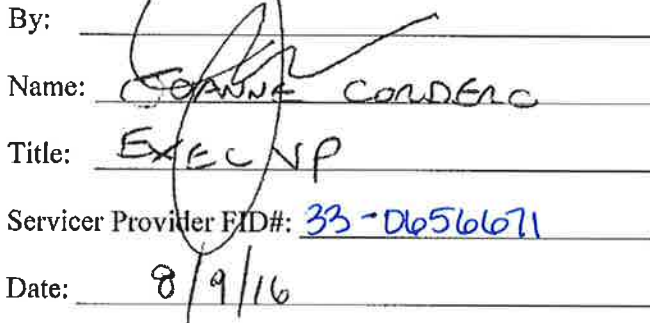 By:
Name: JOANNE CORDERO
Title: EXEC VP
Servicer Provider FID#: 33-0656671
Date: 8/9/16